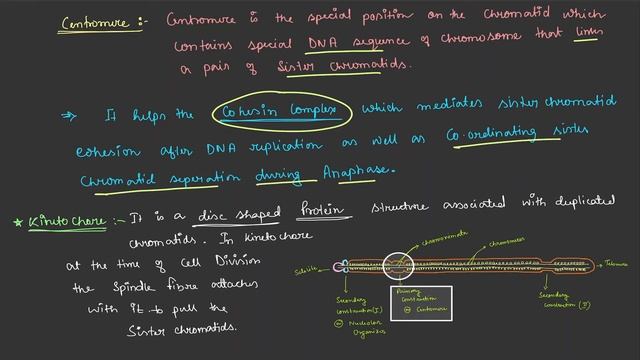 Centromere :- Centromere is the special position on the chromatid which
contains special DNA sequence of chromosome that links
a pair of Sister chromatids.
⇒ It helps the Cohesin Complex which mediates sister chromatid
cohesion after DNA replication as well as Co-ordinating sister
Chromatid seperation during Anaphase.
* Kinetochore :- It is a disc shaped Protein structure associated with duplicated
chromatids. In kinetochore
at the time of Cell Division
the Spindle fibre attaches
with it to pull the
Sister chromatids.
chromonemata
chromomeres
Satelite
Telomere
Secondary
Constriction (I)
Nucleolar
Organizer
Primary
Constriction
Centromere
Secondary
Constriction (II)